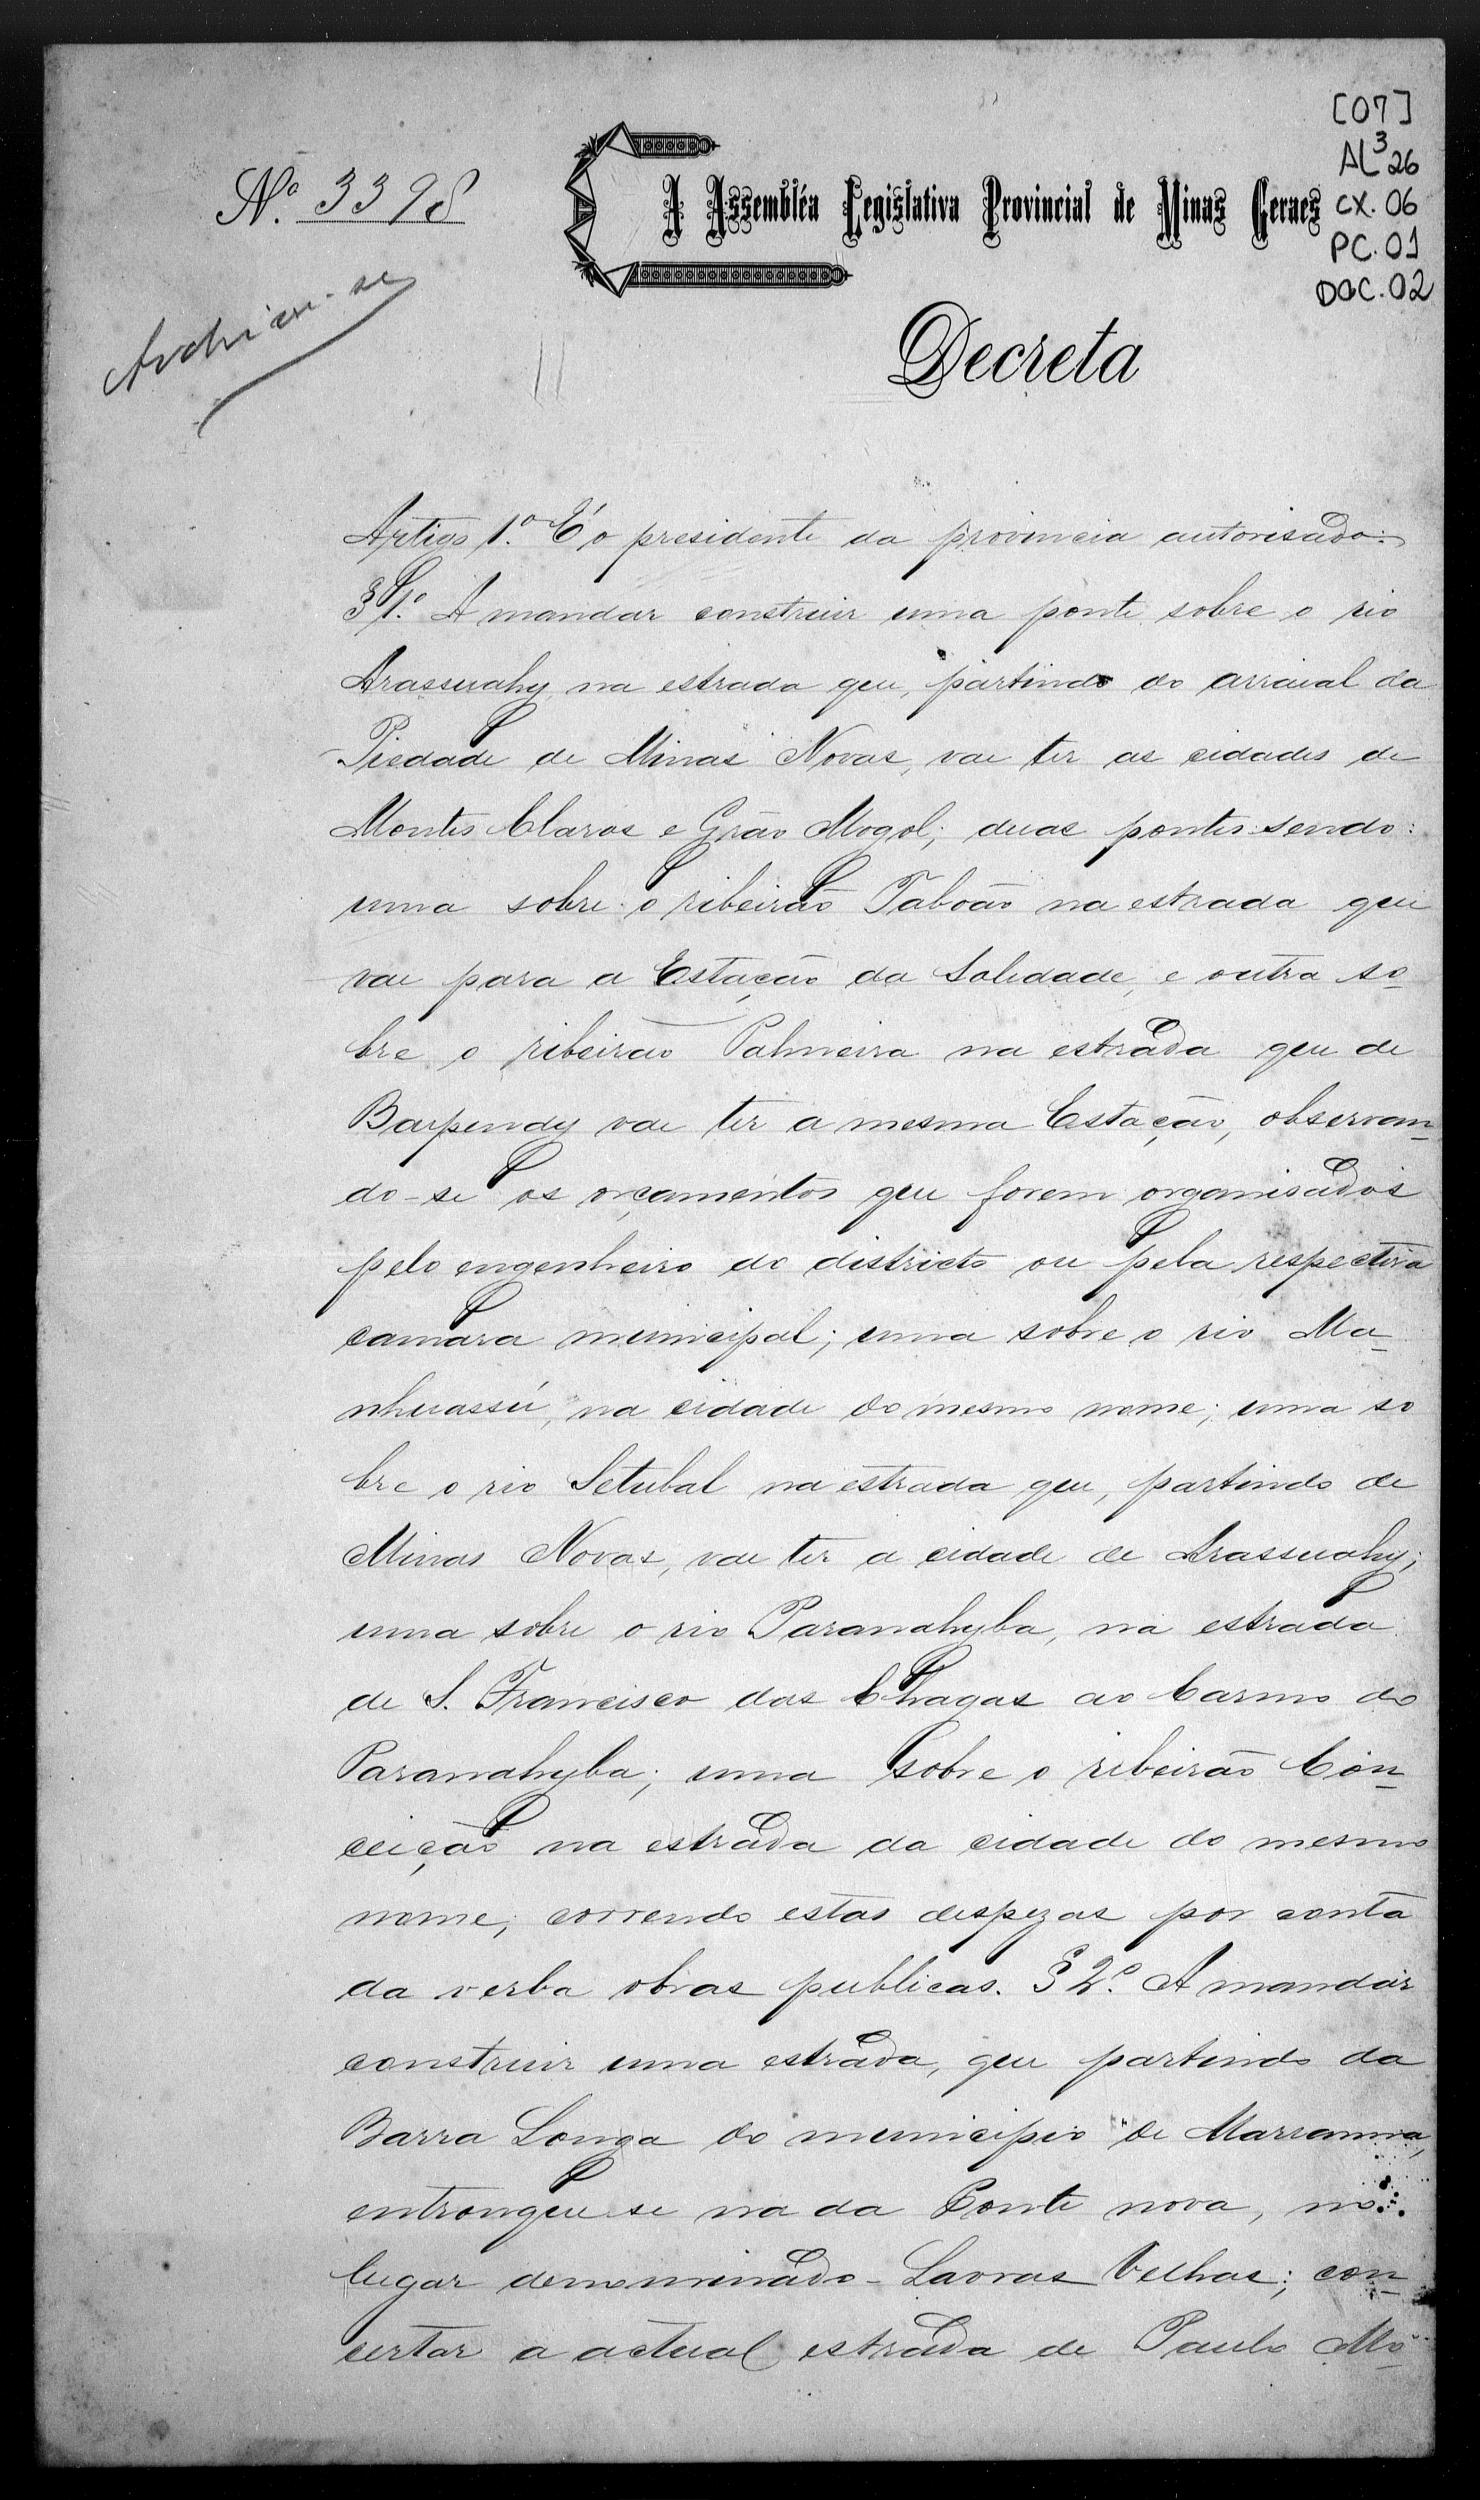 [07]
AL³ 26
CX. 06
PC. 01
DOC. 02
Nº 3398
A Assembléa Legislativa Provincial de Minas Geraes
Archive-se
Decreta
Artigo 1.º É o presidente da provincia autorisado:
§ 1.º A mandar construir uma ponte sobre o rio
Arassuahy na estrada que, partindo do arraial da
Piedade de Minas Novas, vae ter as cidades de
Montes Claros e Grão Mogol; duas pontes sendo:
uma sobre o ribeirão Taboão na estrada que
vae para a Estação da Soledade, e outra so-
bre o ribeirão Palmeira na estrada que de
Baependy vae ter a mesma Estação, observan-
do-se os orçamentos que forem organisados
pelo engenheiro do districto ou pela respectiva
camara municipal; uma sobre o rio Ma-
nhuassú, na cidade do mesmo nome; uma so
bre o rio Setubal na estrada que, partindo de
Minas Novas, vae ter a cidade de Arassuahy;
uma sobre o rio Paranahyba, na estrada
de S. Francisco das Chagas ao Carmo do
Paranahyba; uma sobre o ribeirão Con-
ceição na estrada da cidade do mesmo
nome, correndo estas despezas por conta
da verba obras publicas. § 2.º A mandar
construir uma estrada, que partindo da
Barra Longa do municipio de Marianna,
entronque-se na da Ponte nova, no
lugar denominado - Lavras Velhas; con-
certar a actual estrada de Paulo Mo-